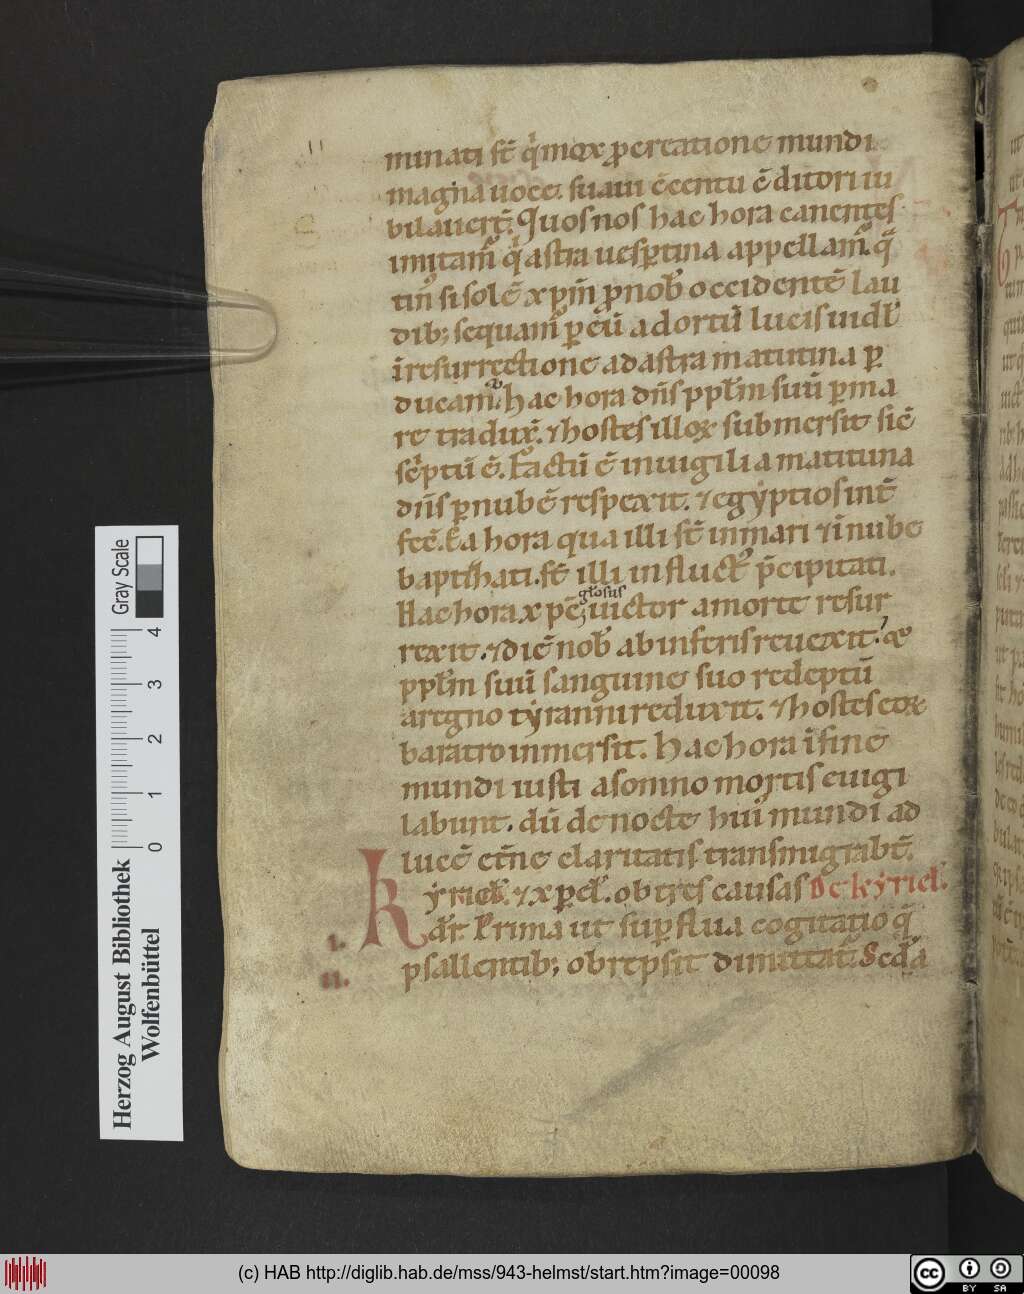 minati st̄ q̇ mox p̱ creatione mundi
magna uoce. suaui c̄centu c̄ditori iu
bilauer̄t. Quos nos hac hora canentes
imitam̄ q̇ astra uesp̱tina appellam̄. q̄
tin̄ si solē xp̄m p̱ nob̄ occidentē lau
dib; sequam̄ p̱ eū ad ortū lucis uidl̄
ī resurrectione ad astra matutina p̱
ducam̄. hac hora dn̄s pplm̄ suū p̱ ma
re tradux̄. ⁊ hostes illoꝝ submersit sic̄
sc̄ptū ē. Factū ē in uigilia matituna
dn̄s p̱ nubē respexit. ⁊ egyptios int̄
fec̄. Ea hora qua illi st̄ in mari ⁊ ī nube
baptizati. st̄ illi in fluct; p̄cipitati.
Hac hora xpē gl̄osus uictor a morte resur
rexit. ⁊ diē nob̄ ab inferis reuexit. ac
pplm̄ suū sanguine suo redeptū
a regno tyranni reduxit. ⁊ hostes eoꝝ
baratro inmersit. Hac hora ī fine
mundi iusti a somno mortis euigi
labunt. dū de nocte hui; mundi ad
lucē et̄ne claritatis transmigrabt̄.
Kyriel̄. ⁊ xp̱el̄. ob tres causas De kyriel̄.
I. dr̄. Prima ut sup̱flua cogitatio q̄
II. psallentib; obrepsit dimittat̄. Scd̄a
Gray Scale
0 1 2 3 4
Herzog August Bibliothek
Wolfenbüttel
(c) HAB http://diglib.hab.de/mss/943-helmst/start.htm?image=00098
cc BY SA